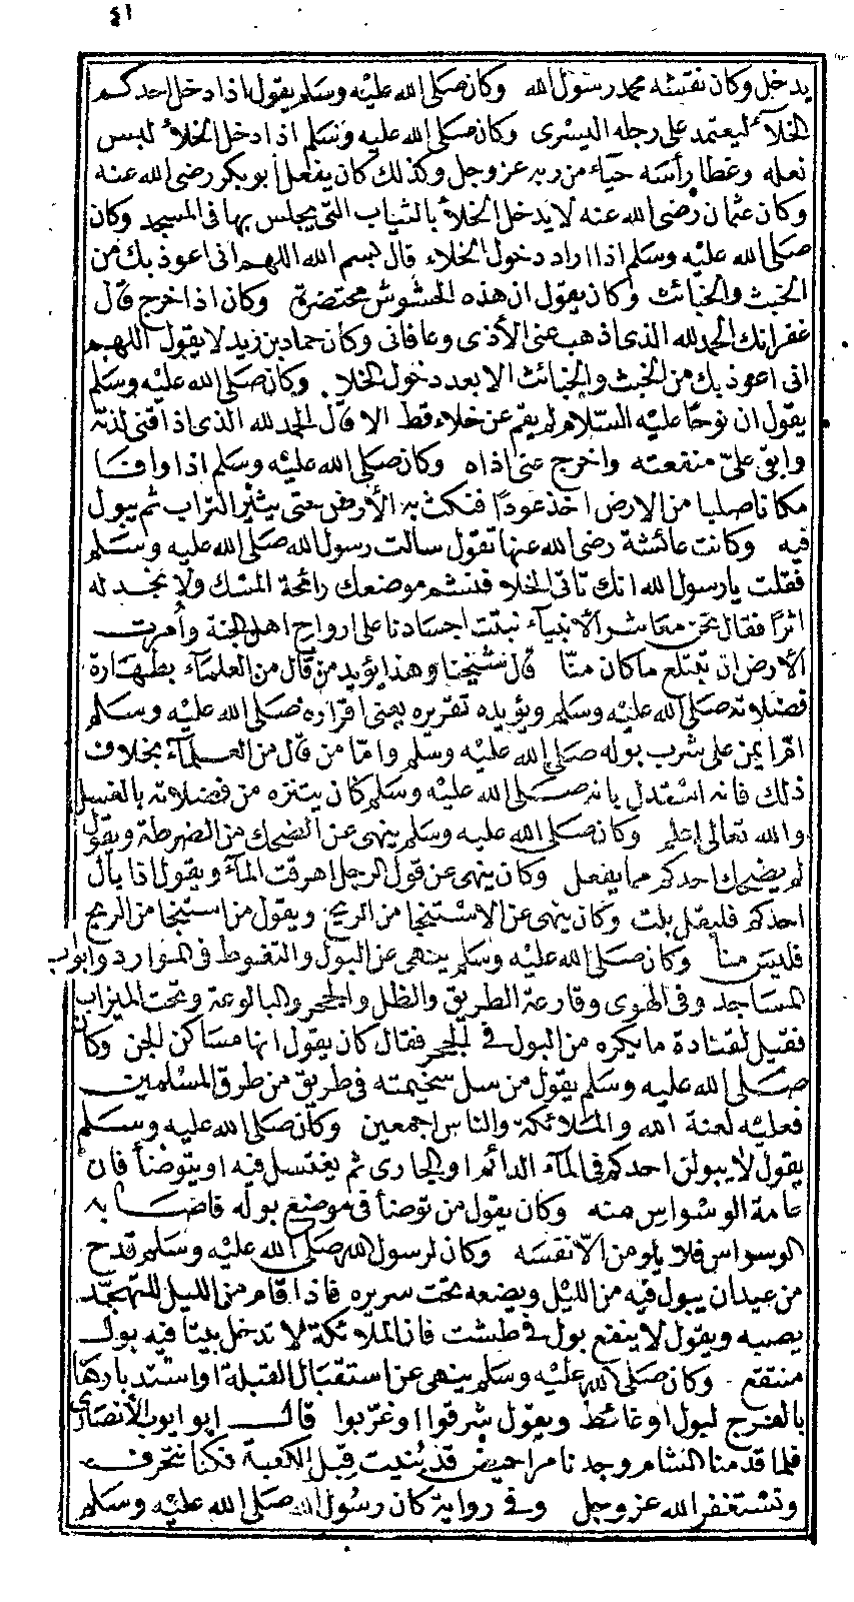 ٤١
يدخل وكان نقشه محمد رسول الله وكان صلى الله عليه وسلم يقول اذا دخل احدكم
الخلآء ليعتمد على رجله اليسرى وكان صلى الله عليه وسلم اذا دخل الخلأ لبس
نعله وغطا رأسه حيآء من ربه عز وجل وكذلك كان يفعل أبو بكر رضى الله عنه
وكان عثمان رضى الله عنه لا يدخل الخلأ بالثياب التى يجلس بها فى المسجد وكان
صلى الله عليه وسلم اذا اراد دخول الخلاء قال بسم الله اللهم انى اعوذ بك من
الخبث والخبائث وكان يقول ان هذه الحشوش محتضرة وكان اذا خرج قال
غفرانك الحمد لله الذى اذهب عنى الأذى وعافانى وكان حماد بن زيد لا يقول اللهم
انى اعوذ بك من الخبث والخبائث الا بعد دخول الخلا وكان صلى الله عليه وسلم
يقول ان نوحا عليه السلام لم يقم عن خلاء قط الا قال الحمد لله الذى اذاقنى لذته
وابقى علىّ منفعته واخرج عنى اذاه وكان صلى الله عليه وسلم اذا وافا
مكانا صلبا من الارض اخذ عودا فنكث به الأرض حتى يثير التراب ثم يبول
فيه وكانت عائشة رضى الله عنها تقول سالت رسول الله صلى الله عليه وسلم
فقلت يا رسول الله انك تاتى الخلا فنشم موضعك رائحة المسك ولا نجد له
اثرا فقال نحن معاشر الأنبيآء نبتت اجسادنا على ارواح اهل الجنة وأمرت
الأرض ان تبتلع ما كان منّا قال شيخنا وهذا يؤيد من قال من العلمآء بطهارة
فضلاته صلى الله عليه وسلم ويؤيده تقريره يعنى اقراره صلى الله عليه وسلم
امّ ايمن على شرب بوله صلى الله عليه وسلم وامّا من قال من العلمآء بخلاف
ذلك فانه استدل بانه صلى الله عليه وسلم كان يتنزه من فضلاته بالغسل
والله تعالى اعلم وكان صلى الله عليه وسلم ينهى عن الضحك من الضرطة ويقول
لم يضحك احدكم مما يفعل وكان ينهى عن قول الرجل اهرقت المآء ويقول اذا بال
احدكم فليقل بلت وكان ينهى عن الاستنجا من الريح ويقول من استنجا من الريح
فليس منا وكان صلى الله عليه وسلم ينهى عن البول والتغوط فى الموارد وابواب
المساجد وفى الهوى وقارعة الطريق والظل والجحر والبالوعة وتحت الميزاب
فقيل لقتادة ما يكره من البول فى الجحر فقال كان يقول انها مساكن للجن وكان
صلى الله عليه وسلم يقول من سل سخيمته فى طريق من طرق المسلمين
فعليه لعنة الله والملائكة والناس اجمعين وكان صلى الله عليه وسلم
يقول لا يبولن احدكم فى المآء الدائم او الجارى ثم يغتسل فيه او يتوضأ فان
عامة الوسواس منه وكان يقول من توضأ فى موضع بوله فاصابه
الوسواس فلا يلومن الّا نفسه وكان لرسول الله صلى الله عليه وسلم قدح
من عيدان يبول فيه من الليل ويضعه تحت سريره فاذا قام من الليل للتهجد
يصبه ويقول لا ينقع بول فى طشت فان الملائكة لا تدخل بيتا فيه بول
منتقع وكان صلى الله عليه وسلم ينهى عن استقبال القبلة او استدبارها
بالفرج لبول او غائط ويقول شرقوا او غرّبوا قال ابو ايوب الأنصارى
فلما قدمنا الشام وجدنا مراحيض قد بُنيت قبل الكعبة فكنا ننحرف
ونستغفر الله عز وجل وفى رواية كان رسول الله صلى الله عليه وسلم